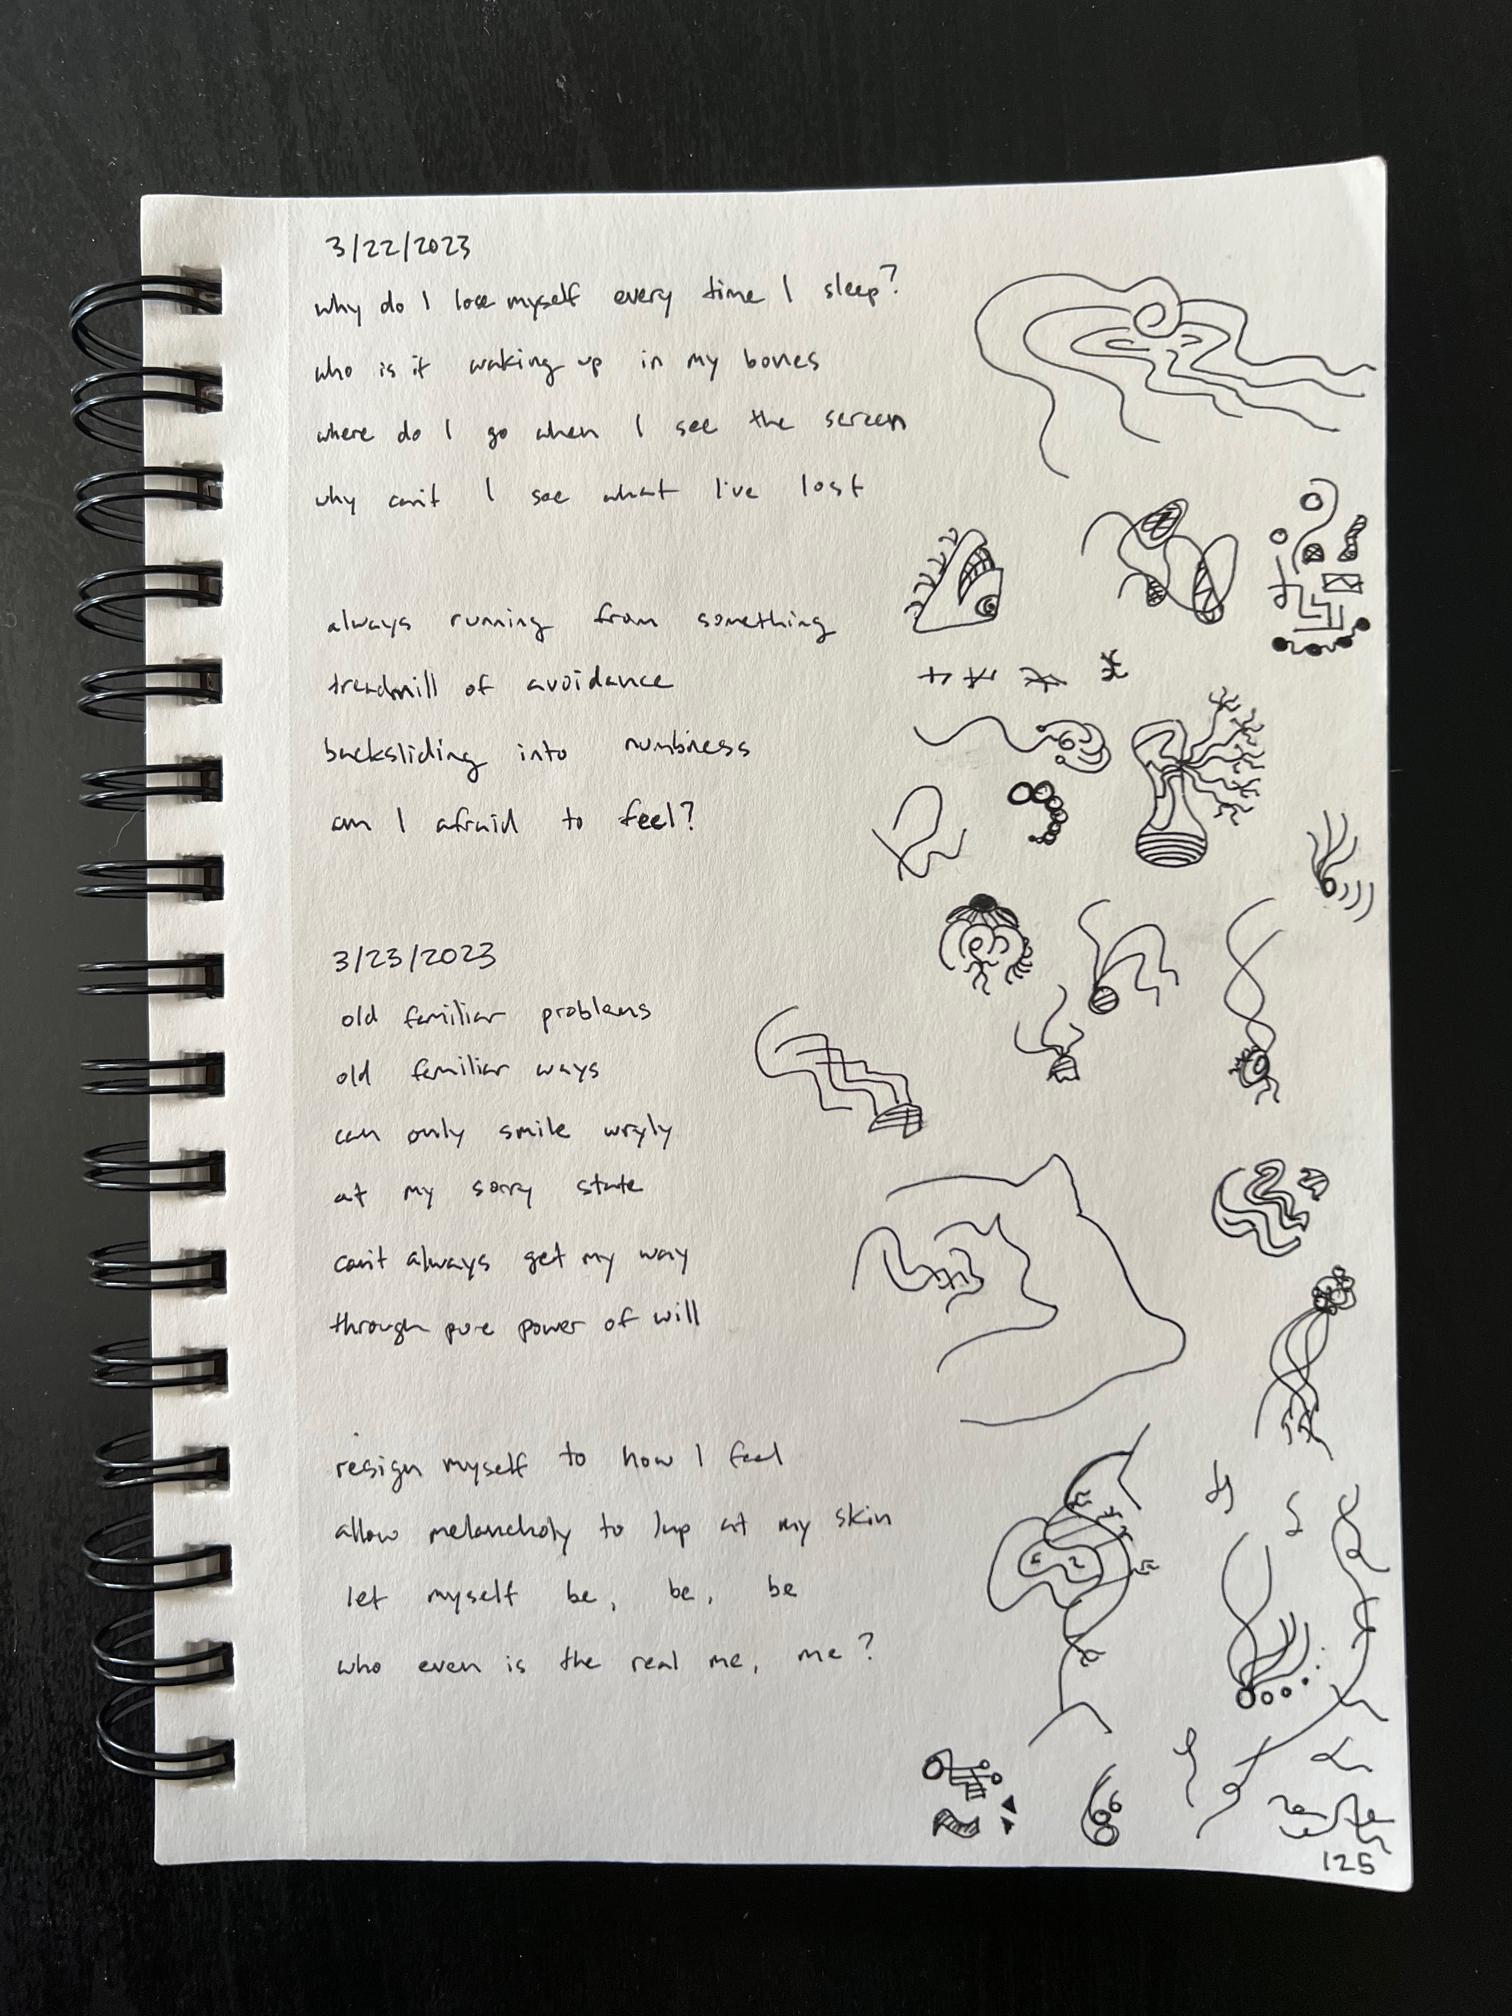 3/22/2023
why do I lose myself every time I sleep?
who is it waking up in my bones
where do I go when I see the screen
why can't I see what I've lost
always running from something
treadmill of avoidance
backsliding into numbness
am I afraid to feel?
3/23/2023
old familiar problems
old familiar ways
can only smile wryly
at my sorry state
can't always get my way
through pure power of will
resign myself to how I feel
allow melancholy to lap at my skin
let myself be, be, be
who even is the real me, me?
125